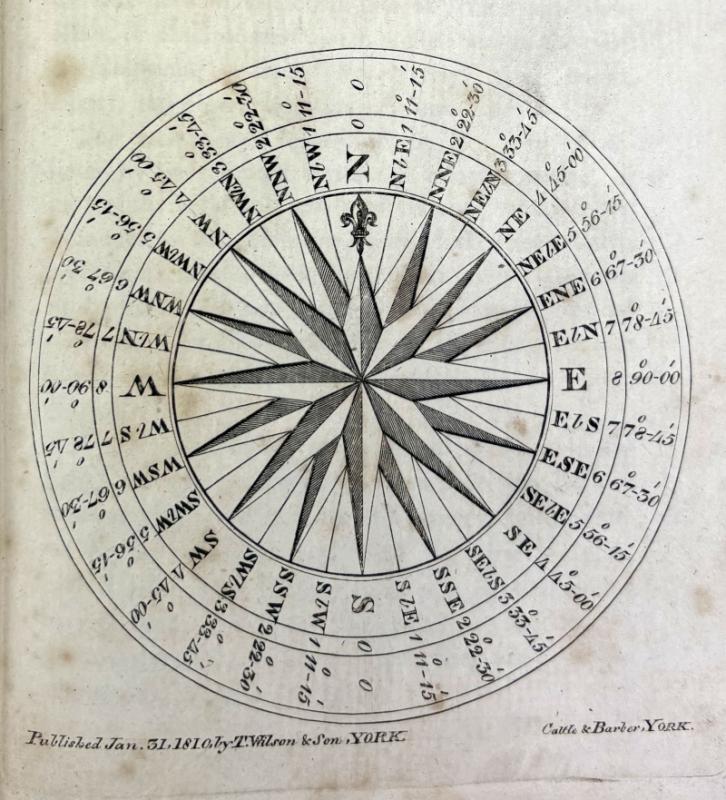 N 0 0
NbE 1 11-15
NNE 2 22-30
NEbN 3 33-45
NE 4 45-00
NEbE 5 56-15
ENE 6 67-30
EbN 7 78-45
E 8 90-00
EbS 7 78-45
ESE 6 67-30
SEbE 5 56-15
SE 4 45-00
SEbS 3 33-45
SSE 2 22-30
SbE 1 11-15
S 0 0
SbW 1 11-15
SSW 2 22-30
SWbS 3 33-45
SW 4 45-00
SWbW 5 56-15
WSW 6 67-30
WbS 7 78 45
W 8 90-00
WbN 7 78-45
WNW 6 67 30
NWbW 5 56-15
NW 4 45-00
NWbN 3 33-45
NNW 2 22-30
NbW 1 11-15
Published Jan. 31, 1810, by T. Wilson & Son, YORK.
Cattle & Barber, YORK.